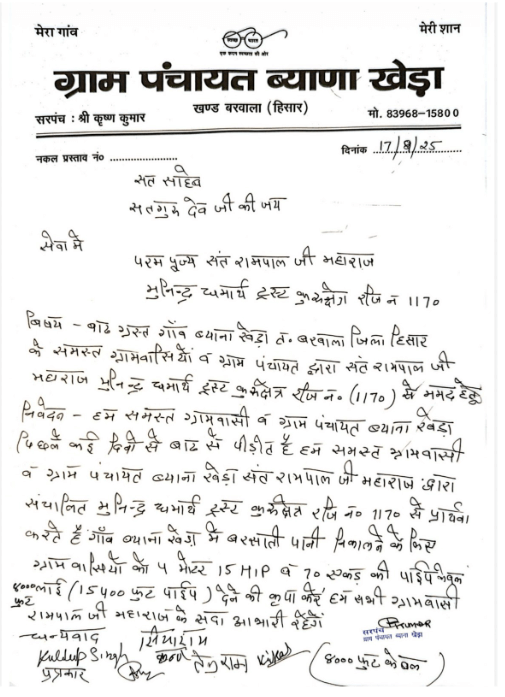 मेरा गांव
मेरी शान
स्वच्छ भारत
एक कदम स्वच्छता की ओर
ग्राम पंचायत ब्याणा खेड़ा
खण्ड बरवाला (हिसार)
सरपंच : श्री कृष्ण कुमार
मो. 83968-15800
नकल प्रस्ताव नं० ......................
दिनांक 17/9/25
सत साहेब
सतगुरु देव जी की जय
सेवा मे
परम पूज्य संत रामपाल जी महाराज
मुनिन्द्र धर्मार्थ ट्रस्ट कुरुक्षेत्र रजि न 1170
विषय - बाढ ग्रस्त गाँव ब्याना खेड़ा त. बरवाला जिला हिसार
के समस्त ग्रामवासियों व ग्राम पंचायत द्वारा संत रामपाल जी
महाराज मुनिन्द्र धर्मार्थ ट्रस्ट कुरुक्षेत्र रजि न० (1170) से मदद हेतु
निवेदन - हम समस्त ग्रामवासी व ग्राम पंचायत ब्याना खेड़ा
पिछले कई दिनो से बाढ से पीड़ीत है हम समस्त ग्रामवासी
व ग्राम पंचायत ब्याना खेड़ा संत रामपाल जी महाराज द्वारा
संचालित मुनिन्द्र धर्मार्थ ट्रस्ट कुरुक्षेत्र रजि न० 1170 से प्रार्थना
करते है गाँव ब्याना खेड़ा में बरसाती पानी निकालने के लिए
ग्रामवासियों को 4 मोटर 15 HP व 70 एकड़ की पाईप केबल
8000 फुट लाई (15400 फुट पाईप) देने की कृपा करें हम सभी ग्रामवासी
रामपाल जी महाराज के सदा आभारी रहेंगे
धन्यवाद
सियाराम
Kuldeep Singh
तेलूराम
सरपंच
ग्राम पंचायत ब्याणा खेड़ा
(8000 फुट केबल)